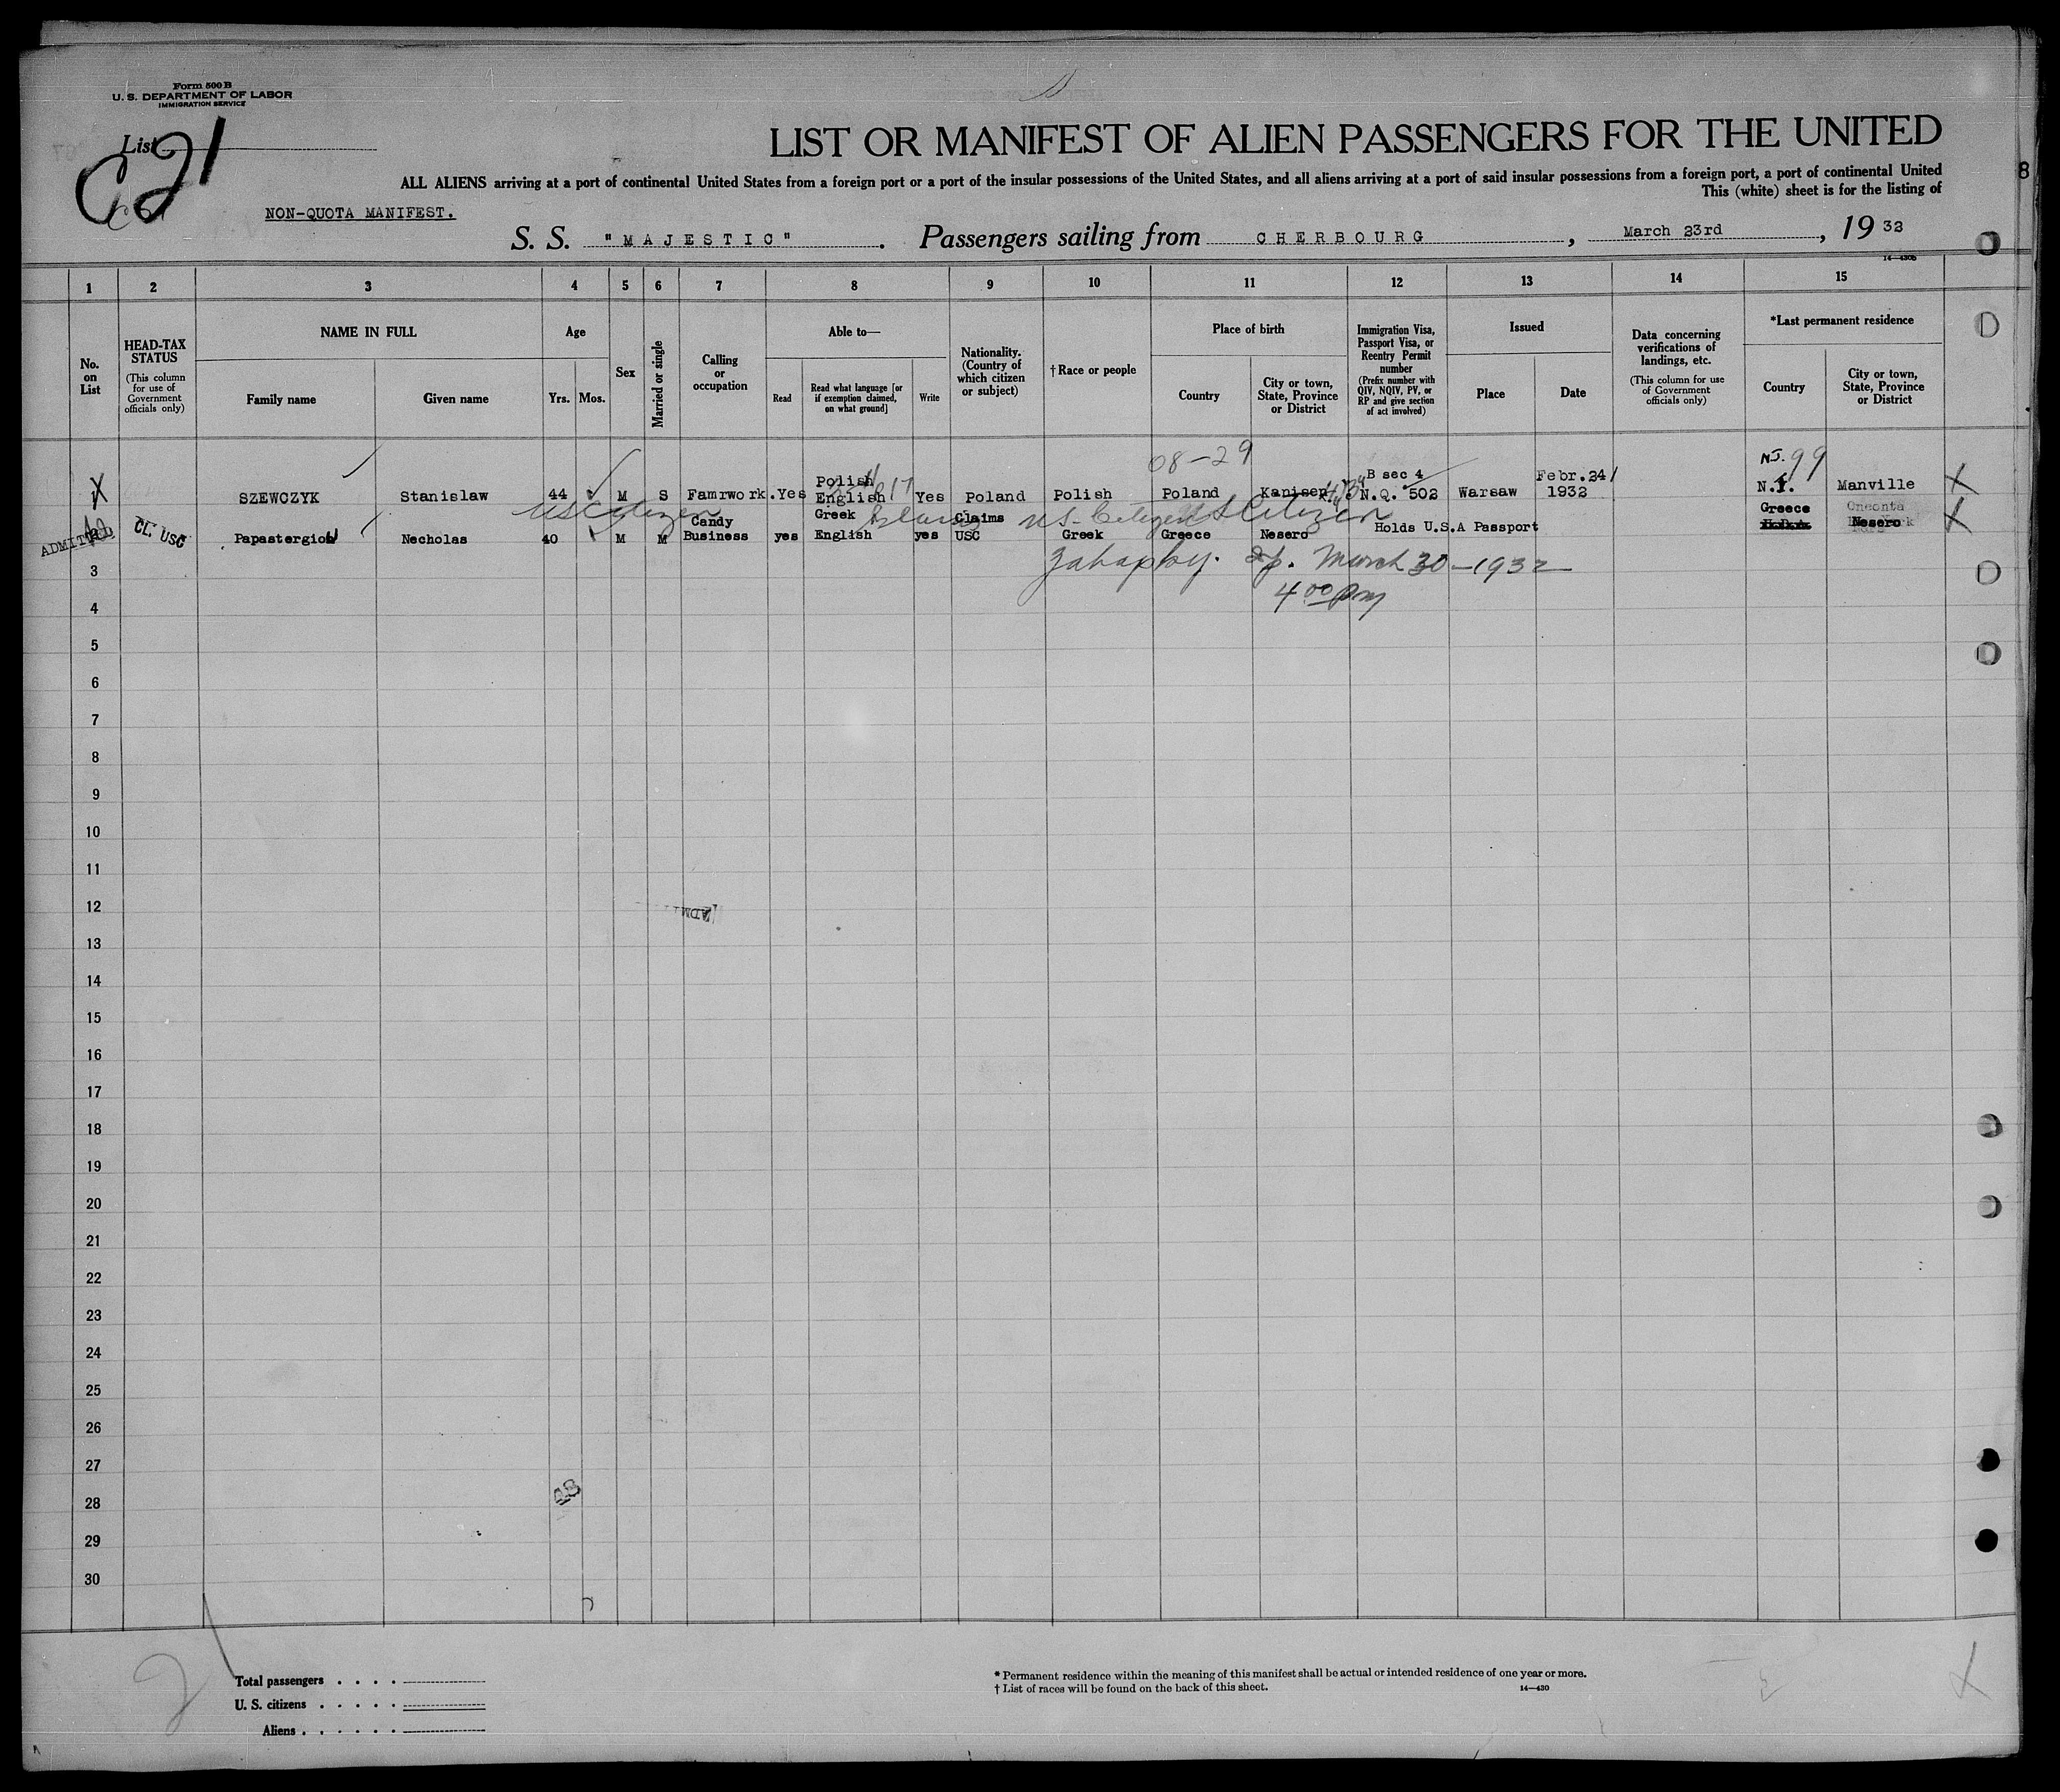 Form 500 B
U. S. DEPARTMENT OF LABOR
IMMIGRATION SERVICE
List
C21
LIST OR MANIFEST OF ALIEN PASSENGERS FOR THE UNITED
ALL ALIENS arriving at a port of continental United States from a foreign port or a port of the insular possessions of the United States, and all aliens arriving at a port of said insular possessions from a foreign port, a port of continental United
This (white) sheet is for the listing of
8
NON-QUOTA MANIFEST.
S. S. "MAJESTIC". Passengers sailing from CHERBOURG, March 23rd, 19 32
1 2 3 4 5 6 7 8 9 10 11 12 13 14 15
No. on List
HEAD-TAX STATUS
(This column for use of Government officials only)
NAME IN FULL
Family name
Given name
Age
Yrs. Mos.
Sex
Married or single
Calling or occupation
Able to—
Read
Read what language [or if exemption claimed, on what ground]
Write
Nationality. (Country of which citizen or subject)
†Race or people
Place of birth
Country
City or town, State, Province or District
Immigration Visa, Passport Visa, or Reentry Permit number
(Prefix number with QIV, NQIV, PV, or RP and give section of act involved)
Issued
Place
Date
Data concerning verifications of landings, etc.
(This column for use of Government officials only)
*Last permanent residence
Country
City or town, State, Province or District
08-29
N.J. 99
SZEWCZYK Stanislaw 44 M S Famrwork. Yes Polish English Yes Poland Polish Poland B sec 4 N.Q. 502 Warsaw Febr.24 1932 Manville
US Citizen
US Citizen
ADMITTED CL. USC Papastergiou Necholas 40 M M Candy Business yes Greek English yes Claims USC Greek Greece Nesero Holds U.S.A Passport Greece Nesero
March 30-1932
4 00 pm
3
4
5
6
7
8
9
10
11
12
13
14
15
16
17
18
19
20
21
22
23
24
25
26
27
28
29
30
2
Total passengers . . . .
U. S. citizens . . . . .
Aliens . . . . . .
* Permanent residence within the meaning of this manifest shall be actual or intended residence of one year or more.
† List of races will be found on the back of this sheet.
14—430